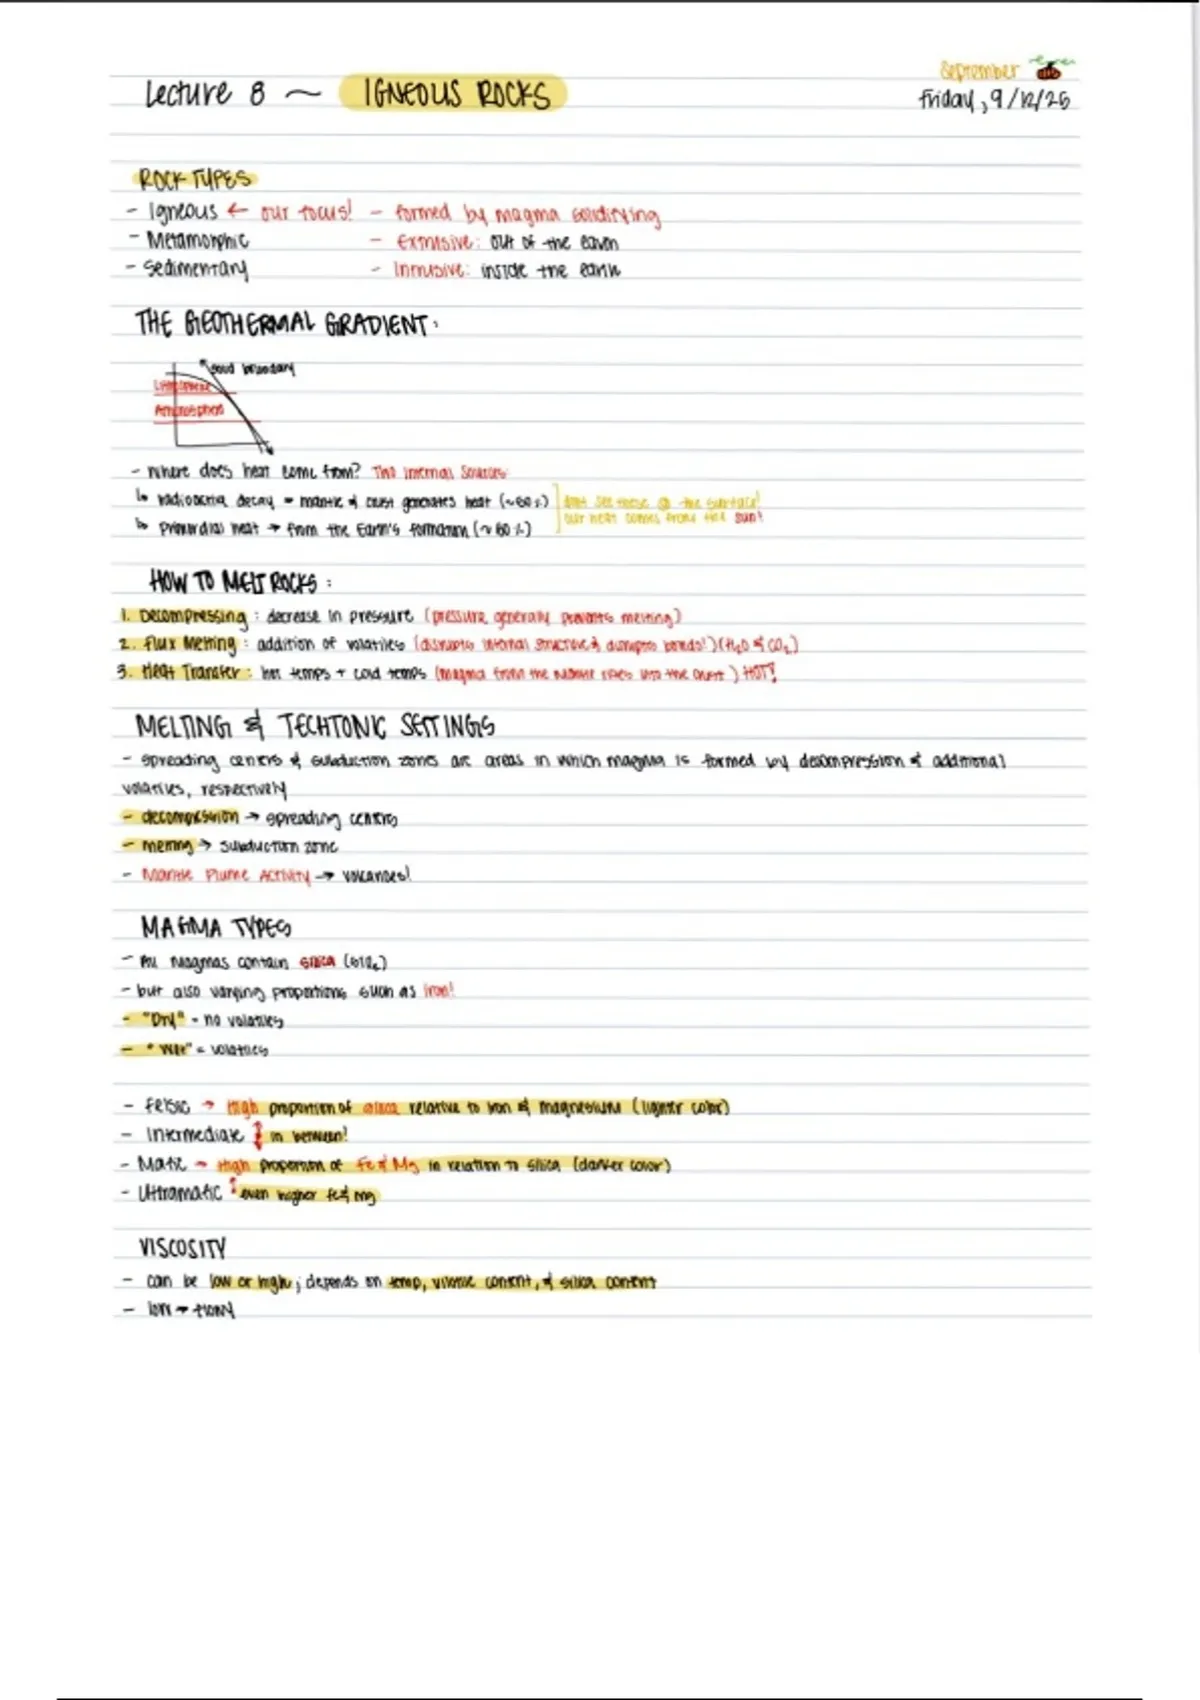 September
Lecture 8 ~ IGNEOUS ROCKS
Friday, 9/12/25
ROCK TYPES
- Igneous ← our focus! - formed by magma solidifying
- Metamorphic - Extrusive: out of the earth
- Sedimentary - Intrusive: inside the earth
THE GEOTHERMAL GRADIENT:
boundary
Lithosphere
- Where does heat come from? Two internal sources:
↳ radioactive decay → mantle & crust generates heat (~50%) ] don't see these @ the surface!
↳ Primordial heat → from the Earth's formation (~50%) our heat comes from the sun!
HOW TO MELT ROCKS:
1. Decompressing: decrease in pressure (pressure generally prevents melting)
2. Flux Melting: addition of volatiles (disrupts internal structure & disrupts bonds!) (H₂O & CO₂)
3. Heat Transfer: hot temps + cold temps (magma from the mantle rises into the crust) HOT!
MELTING & TECHTONIC SETTINGS
- spreading centers & subduction zones are areas in which magma is formed by decompression & additional
volatiles, respectively
- decompression → spreading centers
- melting → subduction zone
- Mantle Plume Activity → volcanoes!
MAGMA TYPES
- All magmas contain silica (SiO₂)
- but also varying proportions such as iron!
- "Dry" = no volatiles
- "Wet" = volatiles
- Felsic → High proportion of silica relative to iron & magnesium (lighter color)
- Intermediate ↕ in between!
- Mafic → High proportion of Fe & Mg in relation to silica (darker color)
- Ultramafic ↑ even higher Fe & Mg
VISCOSITY
- can be low or high; depends on temp, volatile content, & silica content
- low → flowy